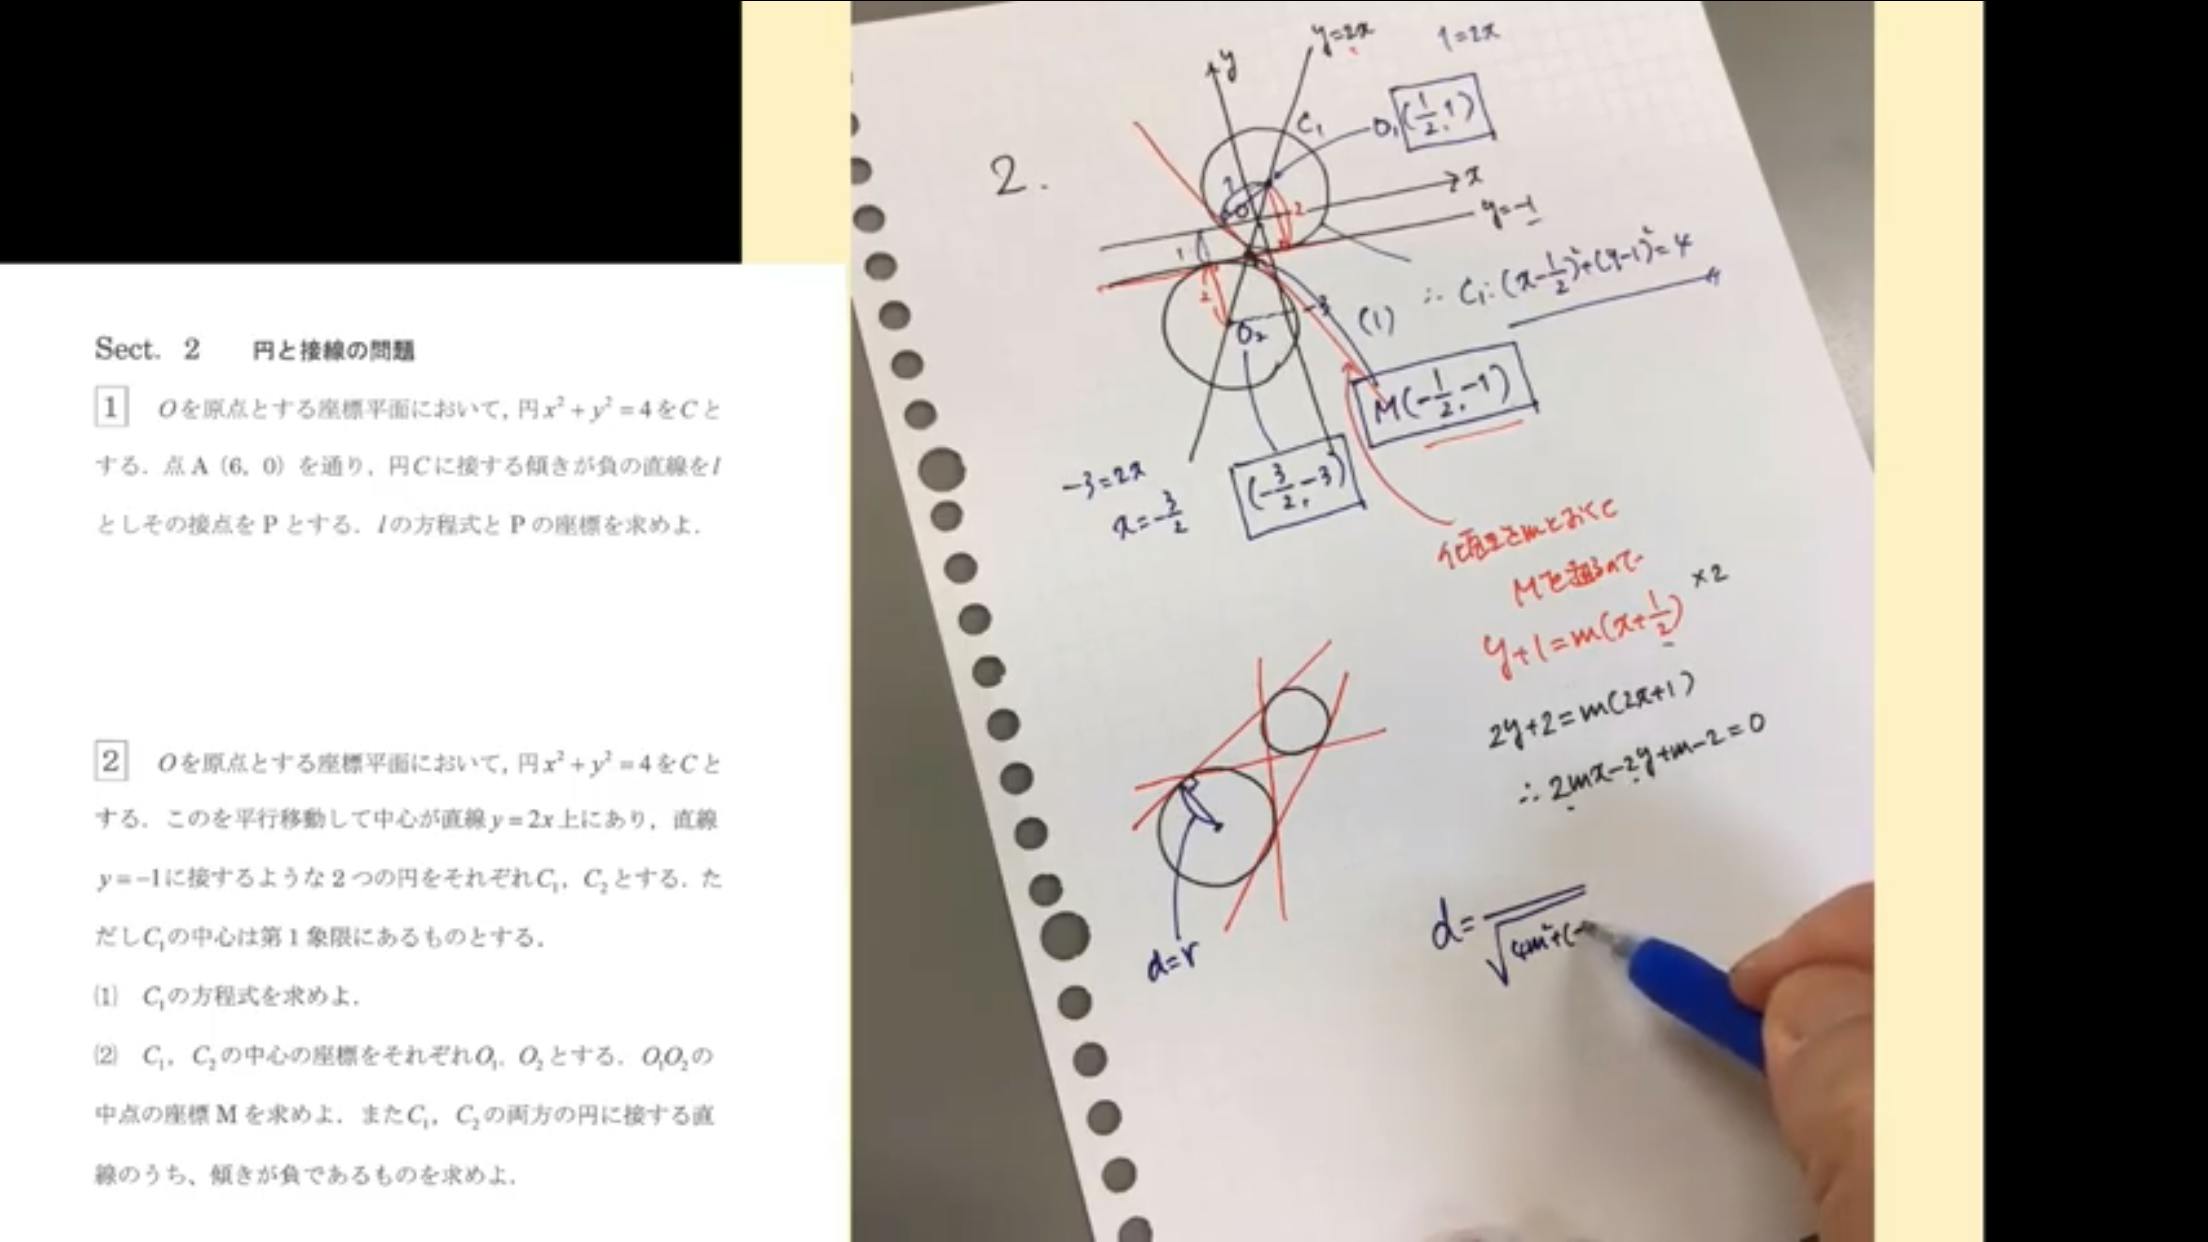 Sect. 2 円と接線の問題
1 Oを原点とする座標平面において，円x²+y²=4をCと
する．点A（6，0）を通り，円Cに接する傾きが負の直線をl
としその接点をPとする．lの方程式とPの座標を求めよ．
2 Oを原点とする座標平面において，円x²+y²=4をCと
する．このを平行移動して中心が直線y=2x上にあり，直線
y=-1に接するような2つの円をそれぞれC₁，C₂とする．た
だしC₁の中心は第1象限にあるものとする．
⑴ C₁の方程式を求めよ．
⑵ C₁，C₂の中心の座標をそれぞれO₁，O₂とする．O₁O₂の
中点の座標Mを求めよ．またC₁，C₂の両方の円に接する直
線のうち、傾きが負であるものを求めよ．
2.
y
y=2x
1=2x
C₁
O₁(1/2, 1)
x
y=-1
1
O
2
1
2
O₂
-3
(1)
∴ C₁:(x-1/2)²+(y-1)²=4
M(-1/2, -1)
(-3/2, -3)
-3=2x
x=-3/2
傾きをmとおくと
Mを通るので
y+1=m(x+1/2) ×2
2y+2=m(2x+1)
∴ 2mx-2y+m-2=0
d=r
d= √4m²+(-